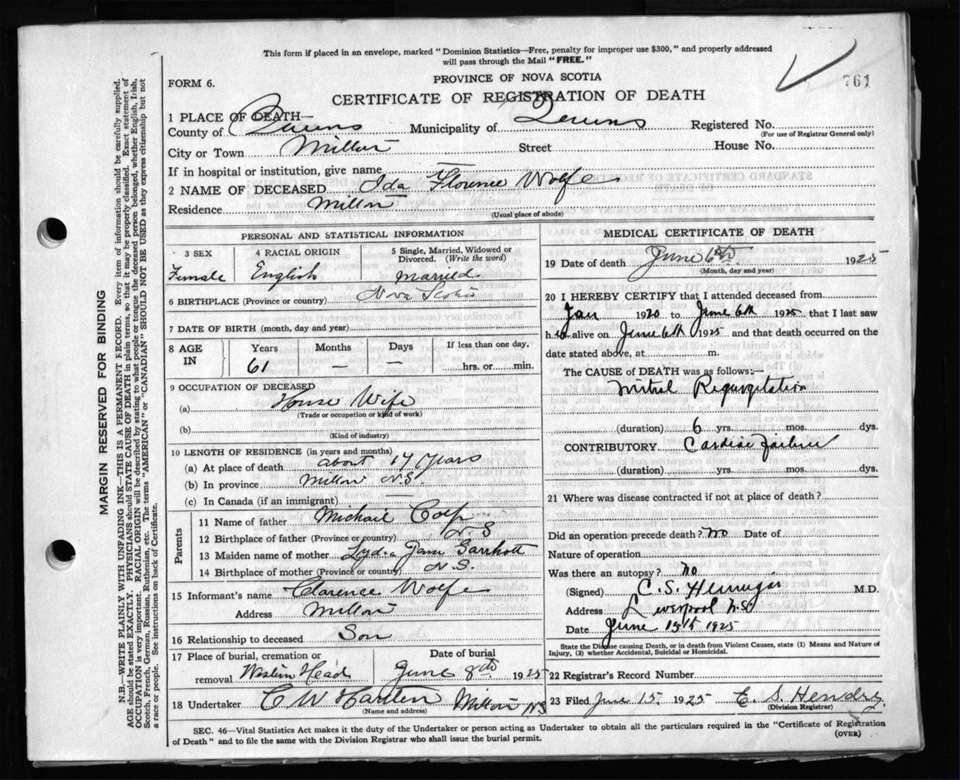 This form if placed in an envelope, marked "Dominion Statistics—Free, penalty for improper use $300," and properly addressed
will pass through the Mail "FREE."
761
FORM 6.
PROVINCE OF NOVA SCOTIA
CERTIFICATE OF REGISTRATION OF DEATH
1 PLACE OF DEATH—
County of Queens Municipality of Queens Registered No.
(For use of Registrar General only)
City or Town Milton Street House No.
If in hospital or institution, give name —
2 NAME OF DECEASED Ida Florence Wolfe
Residence Milton
(Usual place of abode)
PERSONAL AND STATISTICAL INFORMATION
3 SEX
Female
4 RACIAL ORIGIN
English
5 Single, Married, Widowed or
Divorced. (Write the word)
married
6 BIRTHPLACE (Province or country) Nova Scotia
7 DATE OF BIRTH (month, day and year)
8 AGE
IN
Years
61
Months
—
Days
—
If less than one day,
hrs. or min.
9 OCCUPATION OF DECEASED
(a) House Wife
(Trade or occupation or kind of work)
(b)
(Kind of industry)
10 LENGTH OF RESIDENCE (in years and months)
(a) At place of death about 17 Years
(b) In province Milton N.S.
(c) In Canada (if an immigrant) —
Parents
11 Name of father Michail
12 Birthplace of father (Province or country) N S
13 Maiden name of mother Lydia Jane
14 Birthplace of mother (Province or country) N.S.
15 Informant's name Clarence Wolfe
Address Milton
16 Relationship to deceased Son
17 Place of burial, cremation or
removal Western Head
Date of burial
June 8th 1925
18 Undertaker C W Milton NS
(Name and address)
MEDICAL CERTIFICATE OF DEATH
19 Date of death June 6th 1925
(Month, day and year)
20 I HEREBY CERTIFY that I attended deceased from
Jan 1920 to June 6th 1925, that I last saw
h alive on June 6th 1925 and that death occurred on the
date stated above, at m.
The CAUSE of DEATH was as follows:—
Mitral Regurgitation
(duration) 6 yrs. mos. dys.
CONTRIBUTORY Cardiac Failure
(duration) yrs. mos. dys.
21 Where was disease contracted if not at place of death?
Did an operation precede death? No Date of
Nature of operation
Was there an autopsy? No
(Signed) C. S. M.D.
Address Liverpool N.S.
Date June 1925
State the Disease causing Death, or in death from Violent Causes, state (1) Means and Nature of
Injury, (2) whether Accidental, Suicidal or Homicidal.
22 Registrar's Record Number
23 Filed June 15 1925 E. S. Hendry
(Division Registrar)
SEC. 46—Vital Statistics Act makes it the duty of the Undertaker or person acting as Undertaker to obtain all the particulars required in the "Certificate of Registration
of Death" and to file the same with the Division Registrar who shall issue the burial permit.
(OVER)
MARGIN RESERVED FOR BINDING
N.B.—WRITE PLAINLY WITH UNFADING INK—THIS IS A PERMANENT RECORD. Every item of information should be carefully supplied.
AGE should be stated EXACTLY. PHYSICIANS should STATE CAUSE OF DEATH in plain terms, so that it may be properly classified. Exact statement of
OCCUPATION is very important. RACIAL ORIGIN will be described by stating to what people or tongue the deceased person belonged, whether English, Irish,
Scotch, French, German, Russian, Ruthenian, etc. The terms "AMERICAN" or "CANADIAN" SHOULD NOT BE USED as they express citizenship but not
a race or people. See instructions on back of Certificate.